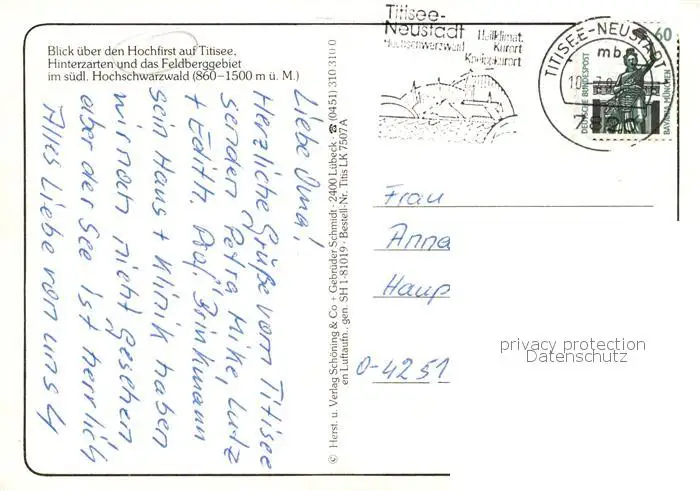 Blick über den Hochfirst auf Titisee,
Hinterzarten und das Feldberggebiet
im südl. Hochschwarzwald (860–1500 m ü. M.)
Liebe Oma!
Herzliche Grüße vom Titisee
senden Petra Mike, Lutz
+ Edith. Prof. Brinkmann
sein Haus + Klinik haben
wir noch nicht gesehen
aber der See ist herrlich
Alles Liebe von uns 4
© Herst. u. Verlag Schöning & Co + Gebrüder Schmidt · 2400 Lübeck · ☎ (0451) 310 310-0
en Luftaufn., gen. SH 1-81019 · Bestell-Nr. Titis LK 7507A
Titisee-
Neustadt
Hochschwarzwald
Heilklimat.
Kurort
Kneippkurort
TITISEE-NEUSTADT
mb
7820
60
DEUTSCHE BUNDESPOST
BAVARIA MÜNCHEN
Frau
Anna
Haup
O-4251
privacy protection
Datenschutz